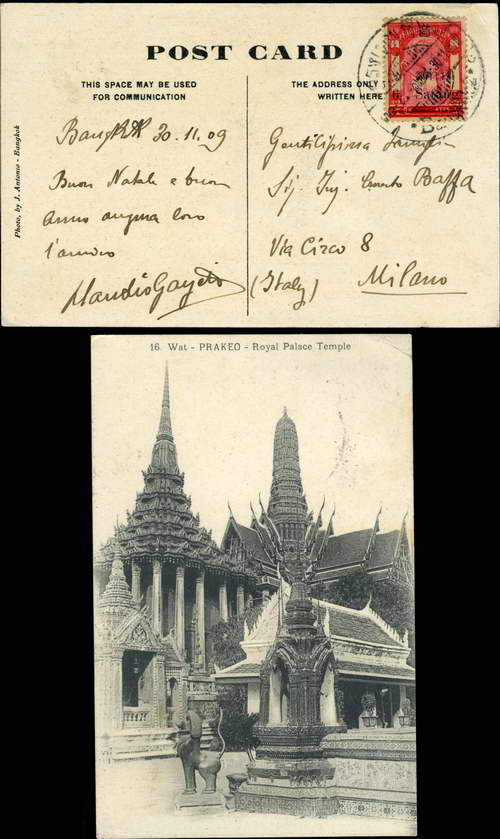 POST CARD
THIS SPACE MAY BE USED
FOR COMMUNICATION
THE ADDRESS ONLY
WRITTEN HERE
Photo, by J. Antonio - Bangkok
Bangkok 30.11.09
Buon Natale e buon
anno augura loro
l'amico
Gentilissima
Sig. Ing. Baffa
Via Circo 8
(Italy) Milano
16. Wat - PRAKEO - Royal Palace Temple